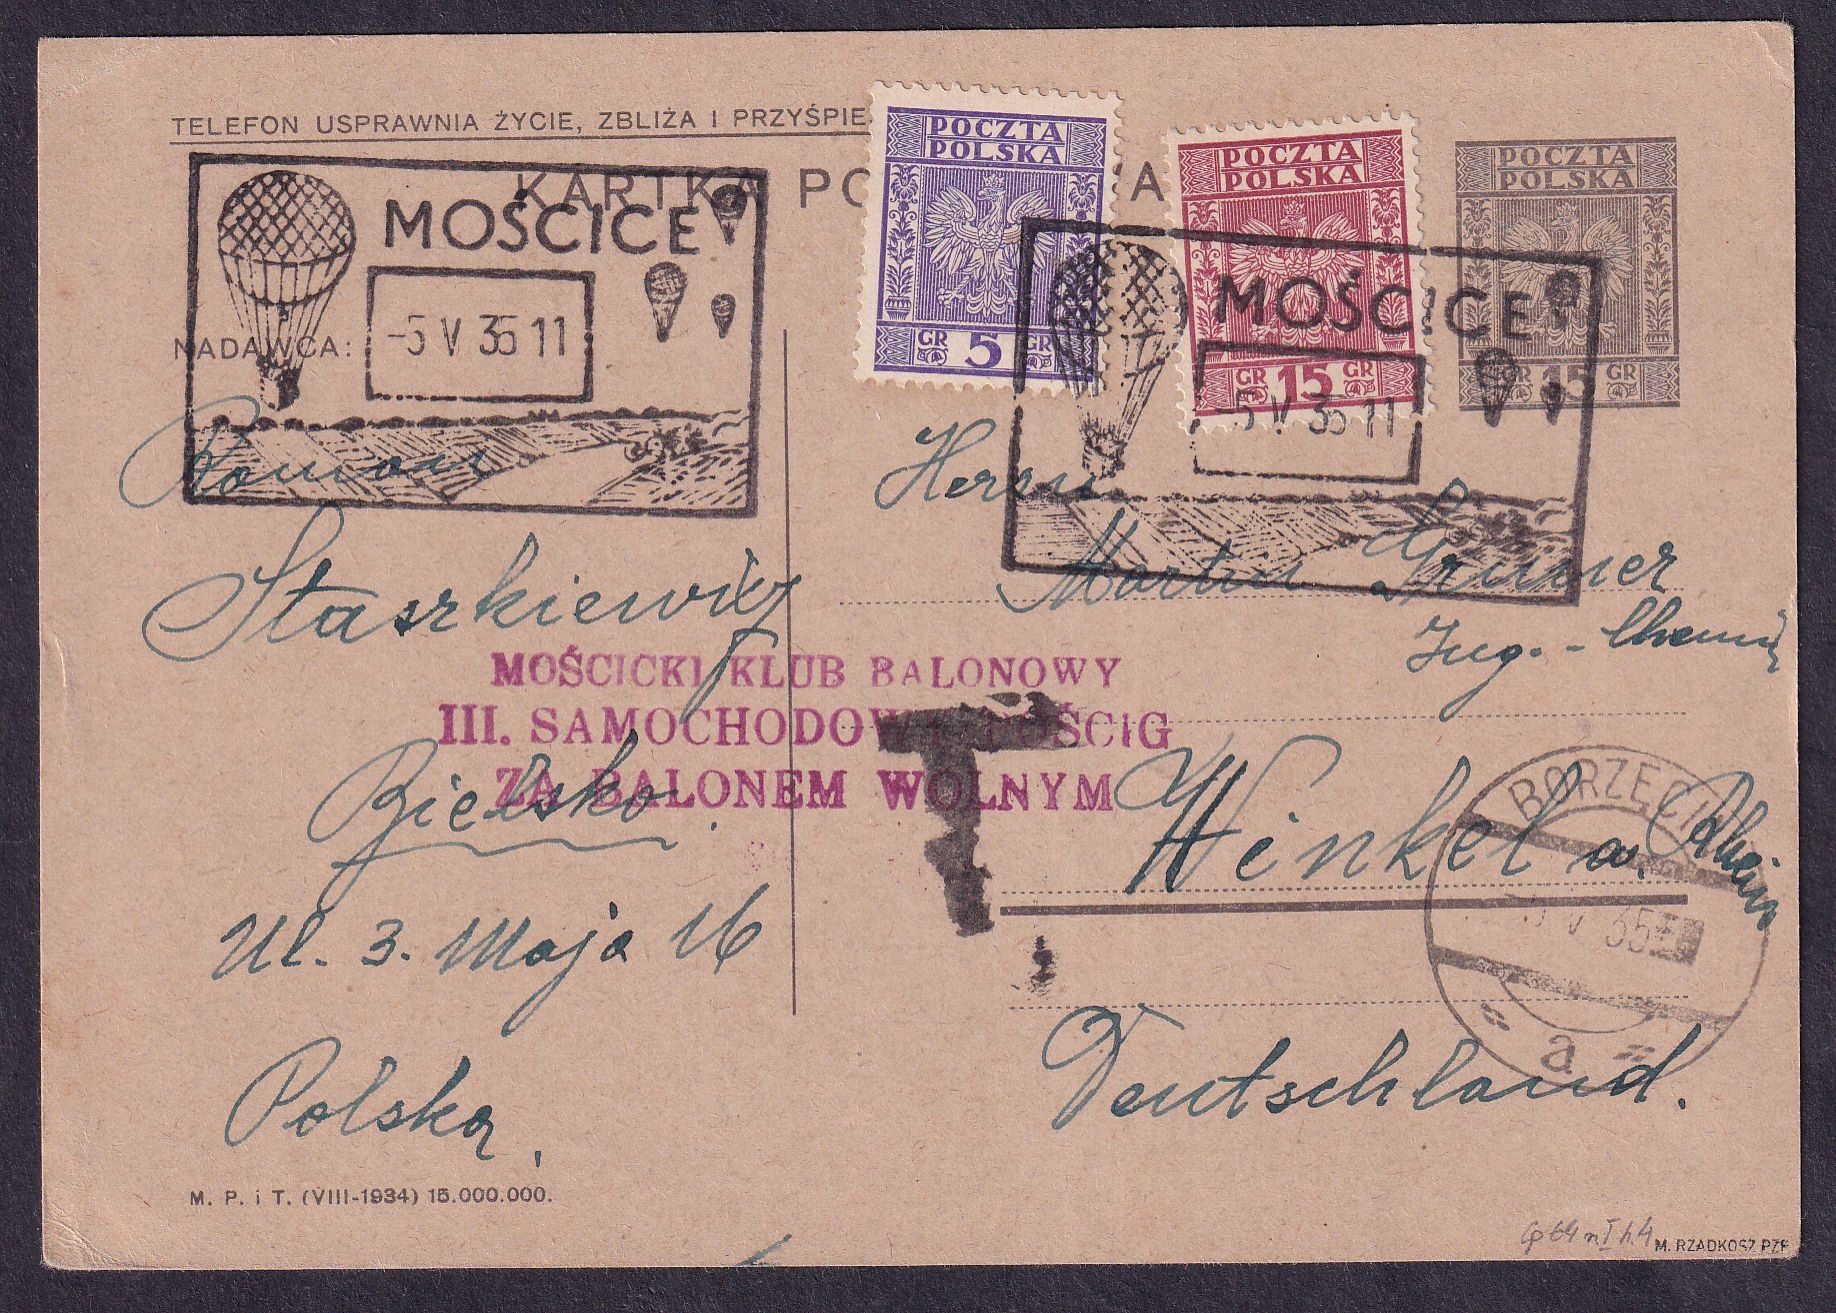 TELEFON USPRAWNIA ŻYCIE, ZBLIŻA I PRZYŚPIE
KARTKA PO A
POCZTA
POLSKA
GR 5 GR
POCZTA
POLSKA
GR 15 GR
POCZTA
POLSKA
GR 15 GR
MOŚCICE
-5 V 35 11
MOŚCICE
-5 V 35 11
NADAWCA:
Roman
Staszkiewicz
Bielsko.
Ul. 3. Maja 16
Polska.
Herrn
Martin Gruner
Ing. - Chemie
Winkel a. Rhein
Deutschland.
MOŚCICKI KLUB BALONOWY
III. SAMOCHODOWY POŚCIG
ZA BALONEM WOLNYM
T
BORZĘCIN
V 35
a
M. P. i T. (VIII-1934) 15.000.000.
Cp 64 n I h 4
M. RZADKOSZ PZF